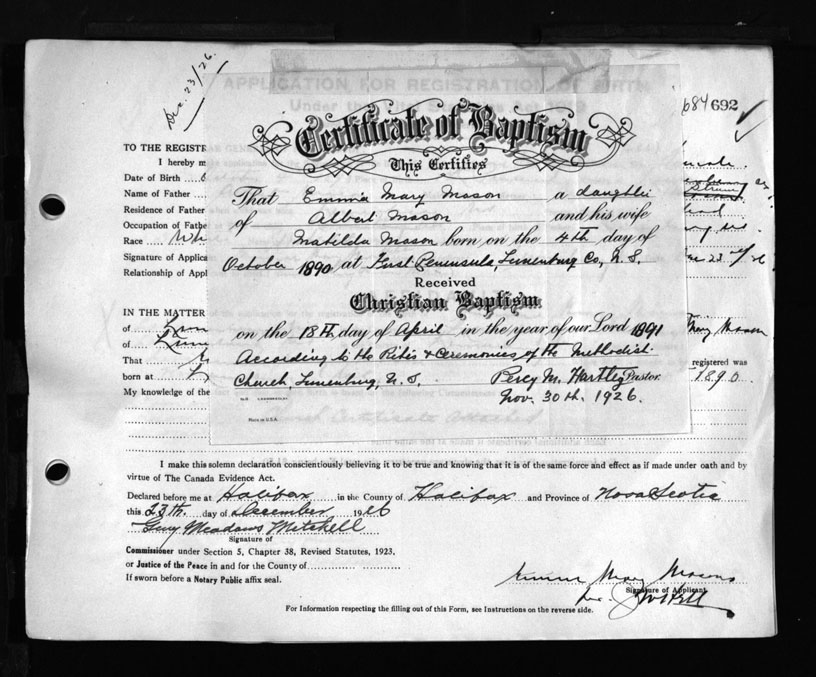 Dec. 23/26.
APPLICATION FOR REGISTRATION OF BIRTH
684692
Certificate of Baptism
This Certifies
TO THE REGISTR
I hereby m
Date of Birth
Name of Father
Residence of Father
Occupation of Father
Race
Signature of Applica
Relationship of Appl
That Emmia Mary Mason a daughter
of Albert Mason and his wife
Matilda Mason born on the 4th day of
October 1890 at First Peninsula, Lunenburg Co, N. S.
Received
Christian Baptism
on the 18th day of April in the year of our Lord 1891
According to the Rites & Ceremonies of the Methodist
Church, Lunenburg, N. S. Percy M. Hartley Pastor.
Nov. 30th. 1926.
Made in U.S.A.
IN THE MATTER
of
of
That
born at
My knowledge of the
Mary Mason
registered was
1890.
I make this solemn declaration conscientiously believing it to be true and knowing that it is of the same force and effect as if made under oath and by
virtue of The Canada Evidence Act.
Declared before me at Halifax in the County of Halifax and Province of Nova Scotia
this 23th. day of December 1926
Guy Meadows Mitchell
Signature of
Commissioner under Section 5, Chapter 38, Revised Statutes, 1923.
or Justice of the Peace in and for the County of
If sworn before a Notary Public affix seal.
Mary Mason
Signature of Applicant
For Information respecting the filling out of this Form, see Instructions on the reverse side.